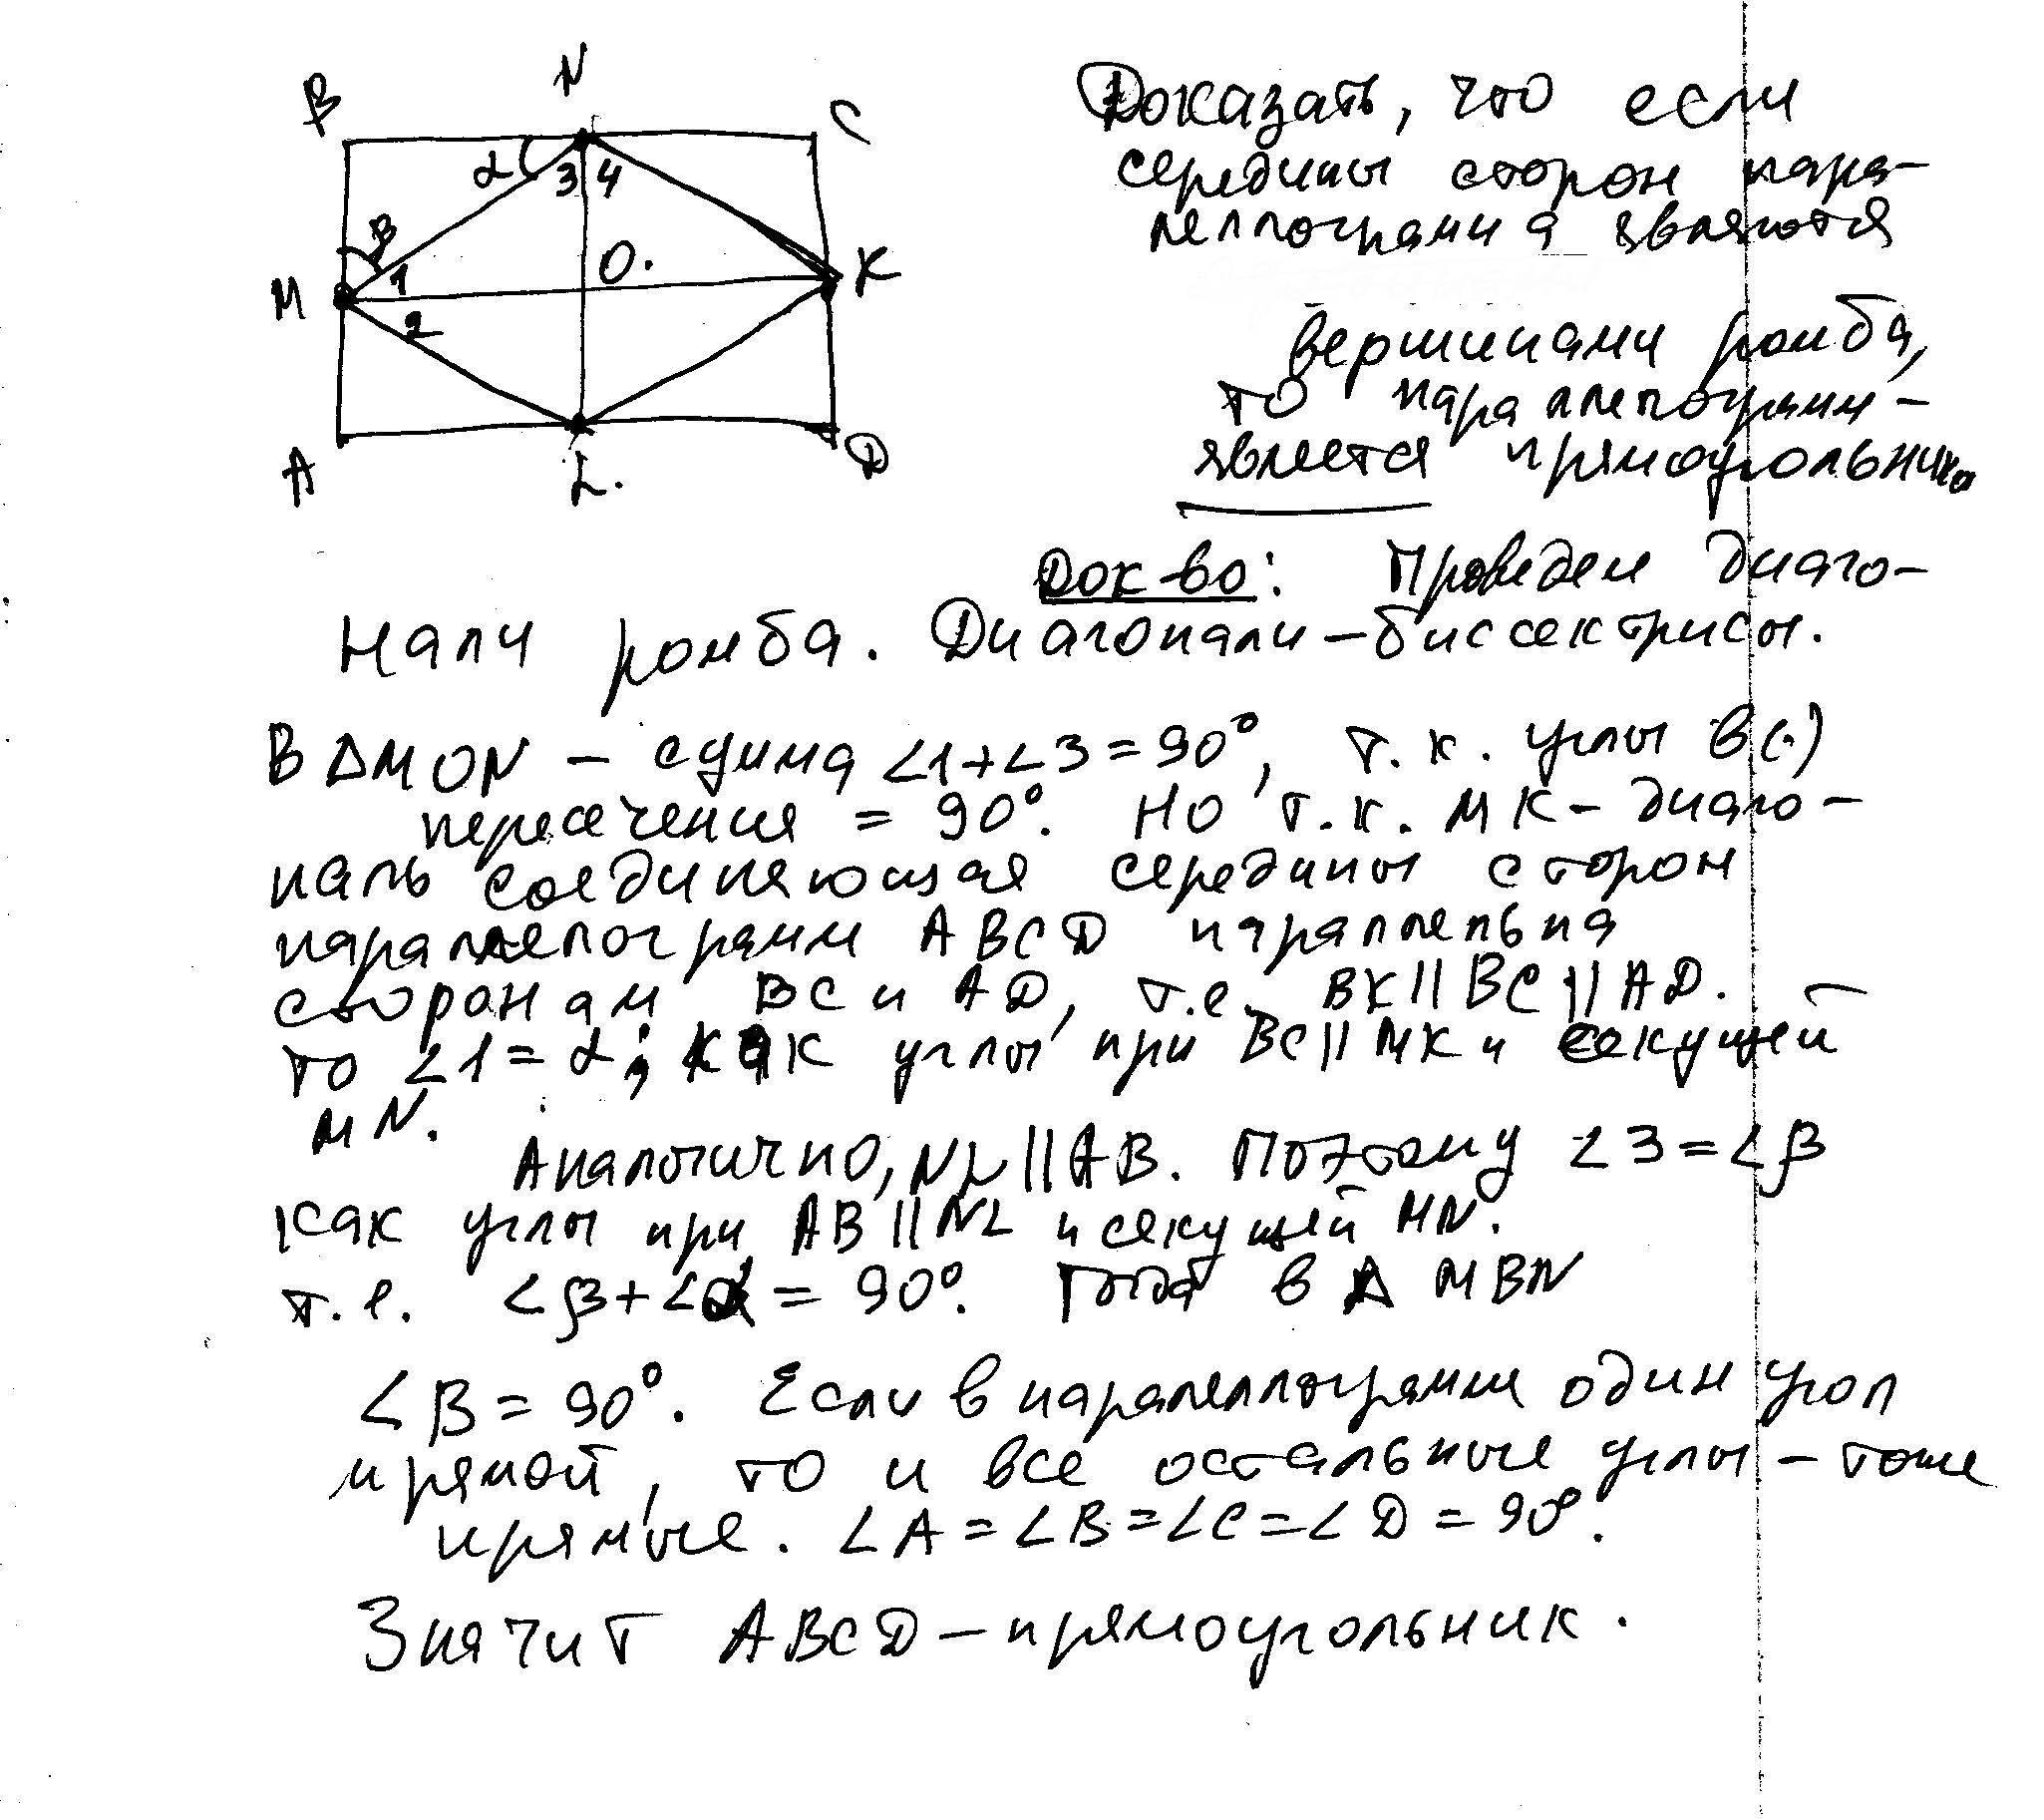 N
B
C
α
3 4
β
1
O.
K
M
2
A
L.
D
Доказать, что если
середины сторон пара-
леллограмма являются
вершинами ромба,
то параллелограмм -
является прямоугольнико
Док-во: Проведем диаго-
нали ромба. Диагонали - биссектрисы.
В ΔMON - сумма ∠1+∠3=90°, т.к. углы в (·)
пересечения = 90°. Но т.к. MK - диаго-
наль соединяющая середины сторон
параллелограмм ABCD параллельна
сторонам BC и AD, т.е. BK||BC||AD.
то ∠1=α; как углы при BC||MK и секущей
MN.
Аналогично, NL||AB. Поэтому ∠3=∠β
как углы при AB||NL и секущей MN.
т.е. ∠β+∠α = 90°. Тогда в Δ MBN
∠B = 90°. Если в паралеллограмме один угол
прямой, то и все остальные углы - тоже
прямые. ∠A=∠B=∠C=∠D = 90°.
Значит ABCD - прямоугольник.